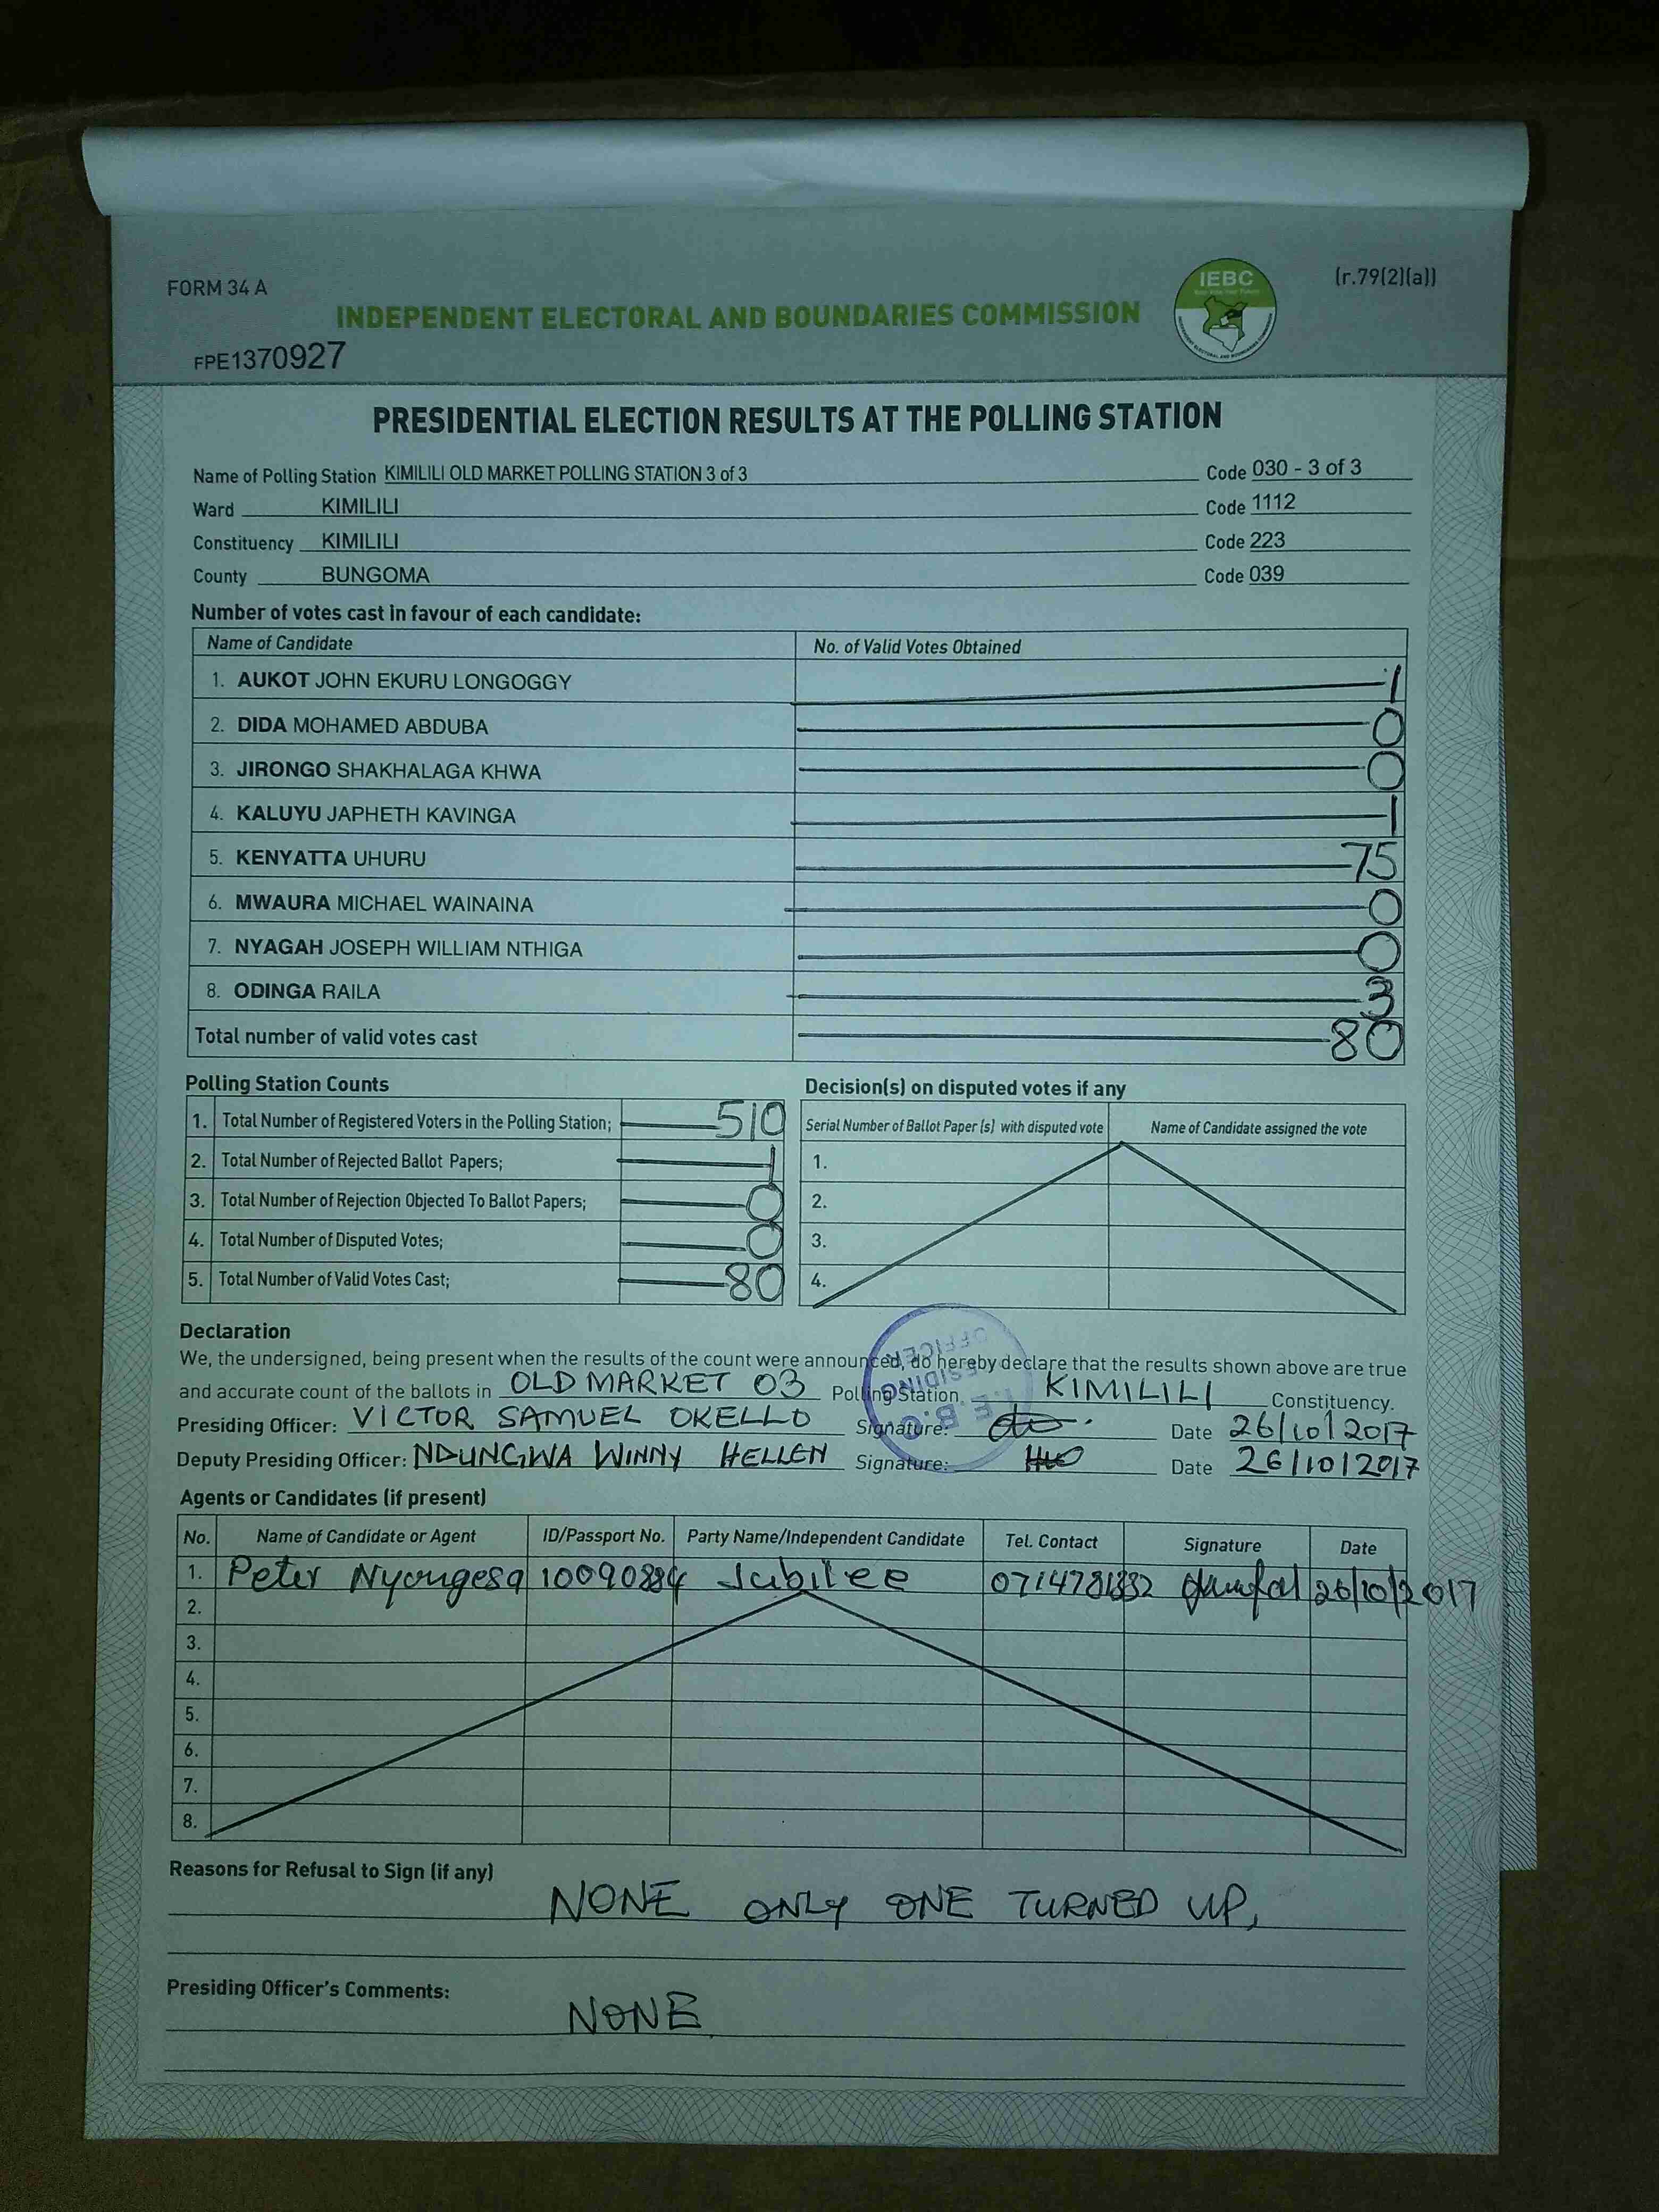 FORM 34 A
(r.79(2)(a))
IEBC
INDEPENDENT ELECTORAL AND BOUNDARIES COMMISSION
FPE1370927
PRESIDENTIAL ELECTION RESULTS AT THE POLLING STATION
Name of Polling Station KIMILILI OLD MARKET POLLING STATION 3 of 3 Code 030 - 3 of 3
Ward KIMILILI Code 1112
Constituency KIMILILI Code 223
County BUNGOMA Code 039
Number of votes cast in favour of each candidate:
Name of Candidate No. of Valid Votes Obtained
1. AUKOT JOHN EKURU LONGOGGY 1
2. DIDA MOHAMED ABDUBA 0
3. JIRONGO SHAKHALAGA KHWA 0
4. KALUYU JAPHETH KAVINGA 1
5. KENYATTA UHURU 75
6. MWAURA MICHAEL WAINAINA 0
7. NYAGAH JOSEPH WILLIAM NTHIGA 0
8. ODINGA RAILA 3
Total number of valid votes cast 80
Polling Station Counts
1. Total Number of Registered Voters in the Polling Station; 510
2. Total Number of Rejected Ballot Papers; 1
3. Total Number of Rejection Objected To Ballot Papers; 0
4. Total Number of Disputed Votes; 0
5. Total Number of Valid Votes Cast; 80
Decision(s) on disputed votes if any
Serial Number of Ballot Paper (s) with disputed vote Name of Candidate assigned the vote
1.
2.
3.
4.
Declaration
We, the undersigned, being present when the results of the count were announced, do hereby declare that the results shown above are true
and accurate count of the ballots in OLD MARKET 03 Polling Station, KIMILILI Constituency.
Presiding Officer: VICTOR SAMUEL OKELLO Signature: Date 26/10/2017
Deputy Presiding Officer: NDUNGWA WINNY HELLEN Signature: Date 26/10/2017
I.E.B.C PRESIDING OFFICER
Agents or Candidates (if present)
No. Name of Candidate or Agent ID/Passport No. Party Name/Independent Candidate Tel. Contact Signature Date
1. Peter Nyongesa Jubilee 26/10/2017
2.
3.
4.
5.
6.
7.
8.
Reasons for Refusal to Sign (if any)
NONE ONLY ONE TURNED UP,
Presiding Officer's Comments:
NONE